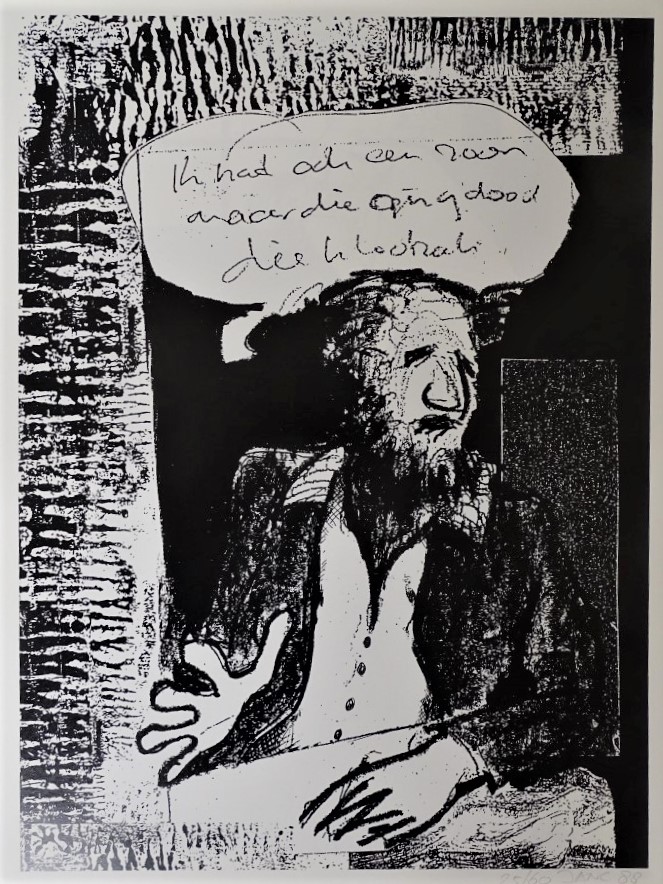 Ik had ook een zoon
maar die ging dood
die klootzak
88